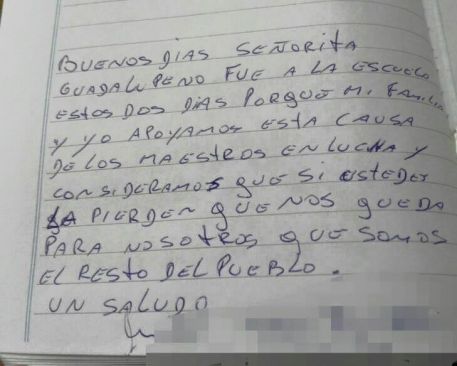 BUENOS DIAS SEÑORITA
GUADALUPE NO FUE A LA ESCUELA
ESTOS DOS DIAS PORQUE MI FAMILIA
Y YO APOYAMOS ESTA CAUSA
DE LOS MAESTROS EN LUCHA Y
CONSIDERAMOS QUE SI USTEDES
LA PIERDEN QUE NOS QUEDA
PARA NOSOTROS QUE SOMOS
EL RESTO DEL PUEBLO.
UN SALUDO